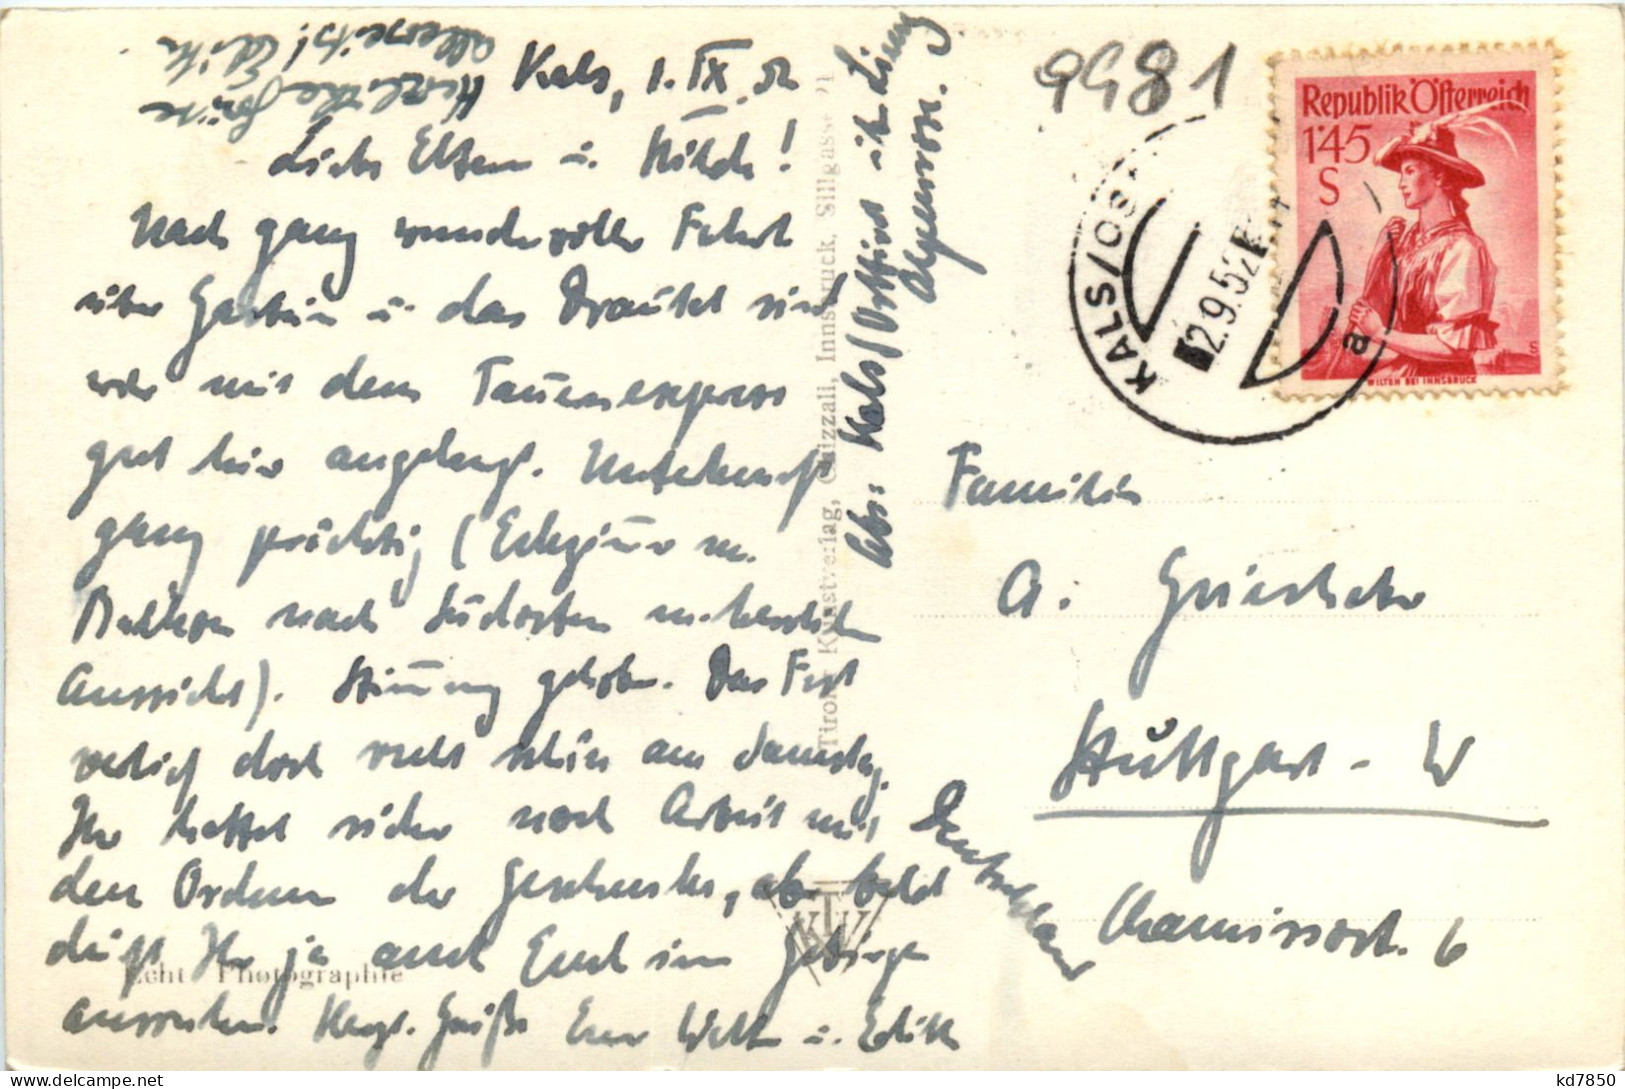 Herzliche Grüße
allerseits! Edith
Kals, 1. IX. 52
Liebe Eltern u. Hilde!
Nach ganz wundervoller Fahrt
über Gastein u. das Drautal sind
wir mit dem Tauernexpress
gut hier angelangt. Unterkunft
ganz prächtig (Eckzimmer m.
Balkon nach Südosten m. herrlicher
Aussicht). Stimmung gehoben. Das Fest
verlief doch recht schön am Samstag.
Ihr hattet sicher noch Arbeit mit
den Ordnen der Geschenke, aber bald
dürft Ihr ja auch Euch im Gebirge
ausruhen. Herzl. Grüße Euer Walter u. Edith
Abs: Kals/Osttirol ü. Lienz
Alpenrose.
Tiroler Kunstverlag, Chizzali, Innsbruck, Sillgasse 21
KTV
Echt Photographie
9981
Republik Österreich
1·45
S
WILTEN BEI INNSBRUCK
KALS/OS
2.9.52
a
Familie
A. Grieshaber
Stuttgart - W
Chamissostr. 6
Deutschland
kd7850